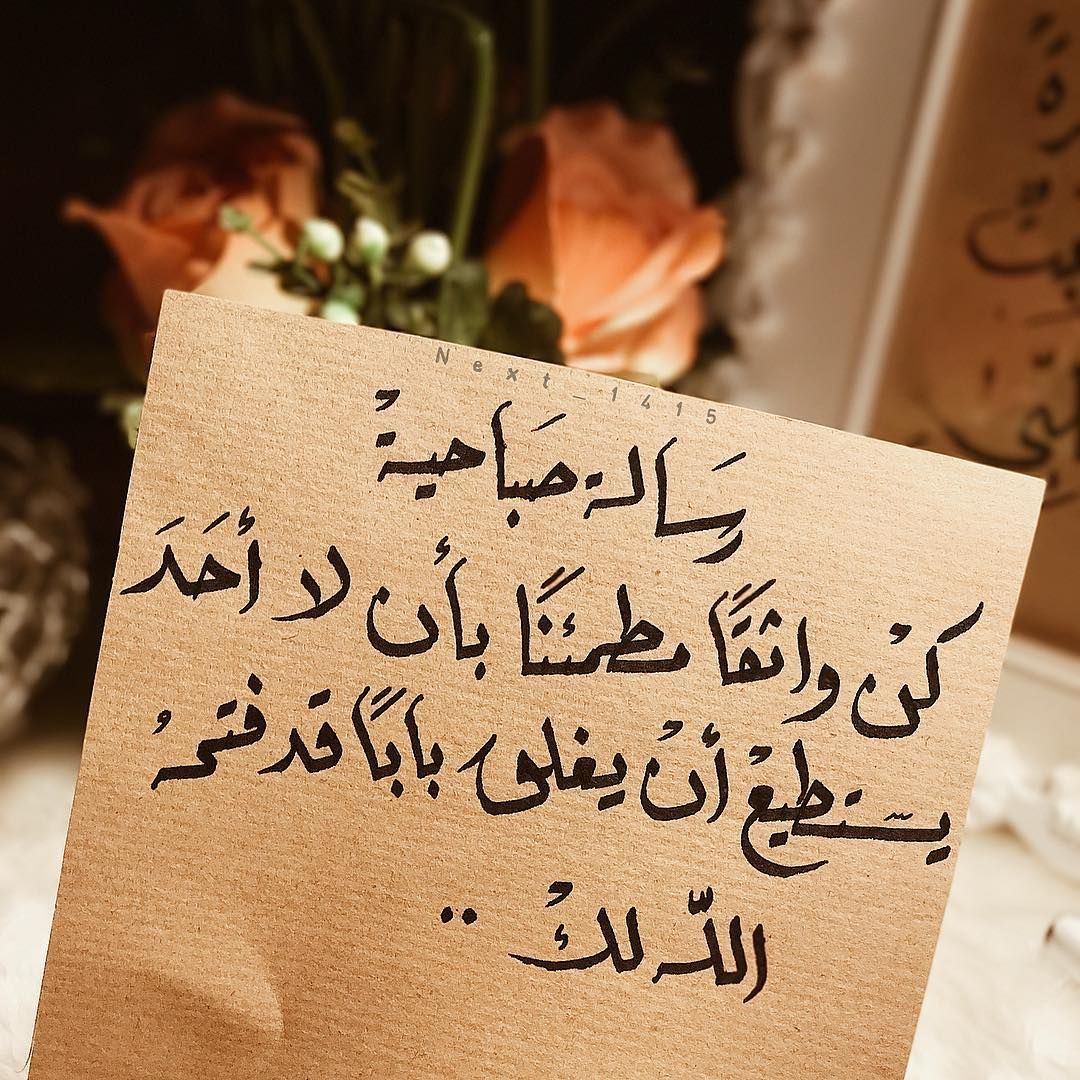 Next_1415
رسَالة صبَاحيةْ
كنْ واثقًا مطمئنًا بأن لا أحَدَ
يستطيعْ أنْ يغلق بابًا قد فتحهُ
اللّه لكْ ..